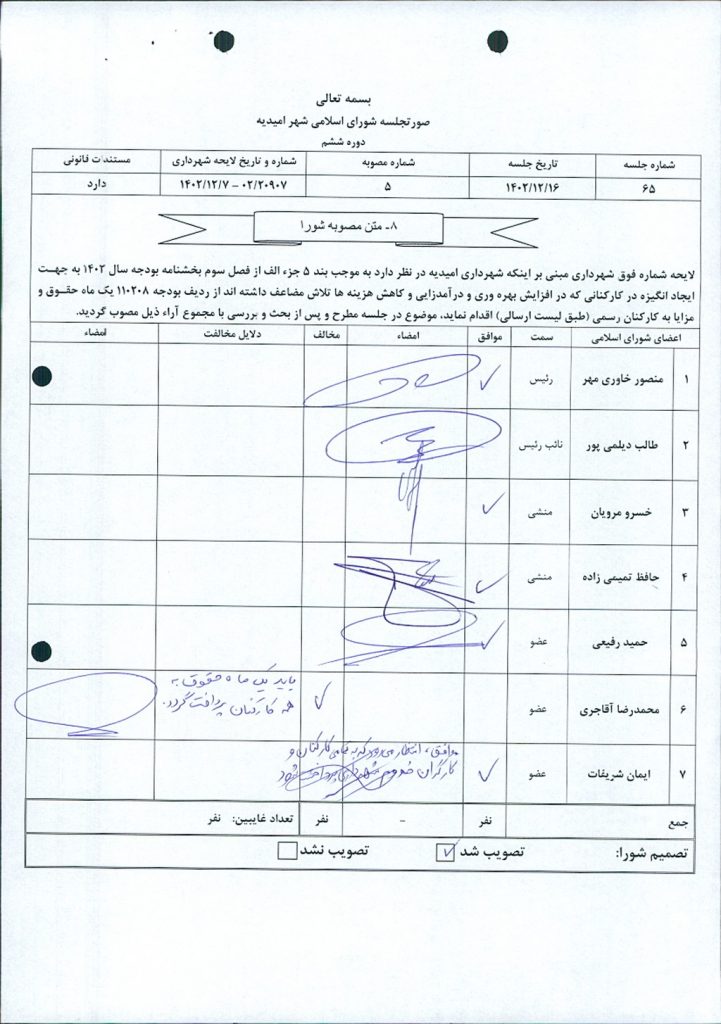 بسمه تعالی
صورتجلسه شورای اسلامی شهر امیدیه
دوره ششم
شماره جلسه تاریخ جلسه شماره مصوبه شماره و تاریخ لایحه شهرداری مستندات قانونی
۶۵ ۱۴۰۲/۱۲/۱۶ ۵ ۰۲/۲۰۹۰۷ – ۱۴۰۲/۱۲/۷ دارد
۸- متن مصوبه شورا
لایحه شماره فوق شهرداری مبنی بر اینکه شهرداری امیدیه در نظر دارد به موجب بند ۵ جزء الف از فصل سوم بخشنامه بودجه سال ۱۴۰۲ به جهت
ایجاد انگیزه در کارکنانی که در افزایش بهره وری و درآمدزایی و کاهش هزینه ها تلاش مضاعف داشته اند از ردیف بودجه ۱۱۰۲۰۸ یک ماه حقوق و
مزایا به کارکنان رسمی (طبق لیست ارسالی) اقدام نماید، موضوع در جلسه مطرح و پس از بحث و بررسی با مجموع آراء ذیل مصوب گردید.
اعضای شورای اسلامی سمت موافق امضاء مخالف دلایل مخالفت امضاء
۱ منصور خاوری مهر رئیس ✓
۲ طالب دیلمی پور نائب رئیس
۳ خسرو مرویان منشی ✓
۴ حافظ تمیمی زاده منشی ✓
۵ حمید رفیعی عضو ✓
۶ محمدرضا آقاجری عضو ✓ باید یک ماه حقوق به
همه کارکنان پرداخت گردد.
۷ ایمان شریفات عضو ✓ موافق، انتظار می‌رود که به تمامی کارکنان و
کارگران خدوم شهرداری پرداخت شود
جمع نفر - نفر تعداد غایبین: نفر
تصمیم شورا: تصویب شد ✓ تصویب نشد